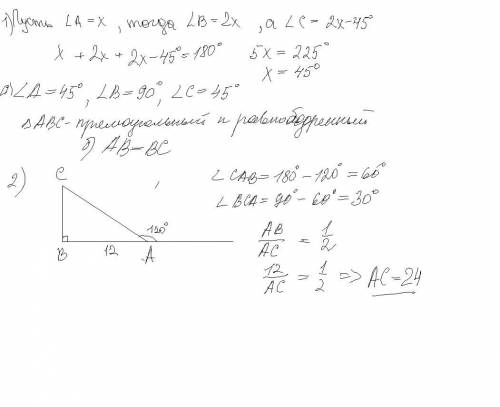 1) Пусть ∠A = x , тогда ∠B = 2x , а ∠C = 2x-45°
x + 2x + 2x - 45° = 180° 5x = 225°
x = 45°
а) ∠A = 45° , ∠B = 90° , ∠C = 45°
△ABC - прямоугольный и равнобедренный
б) AB = BC
2)
C
120°
B 12 A
∠CAB = 180° - 120° = 60°
∠BCA = 90° - 60° = 30°
AB/AC = 1/2
12/AC = 1/2 => AC = 24